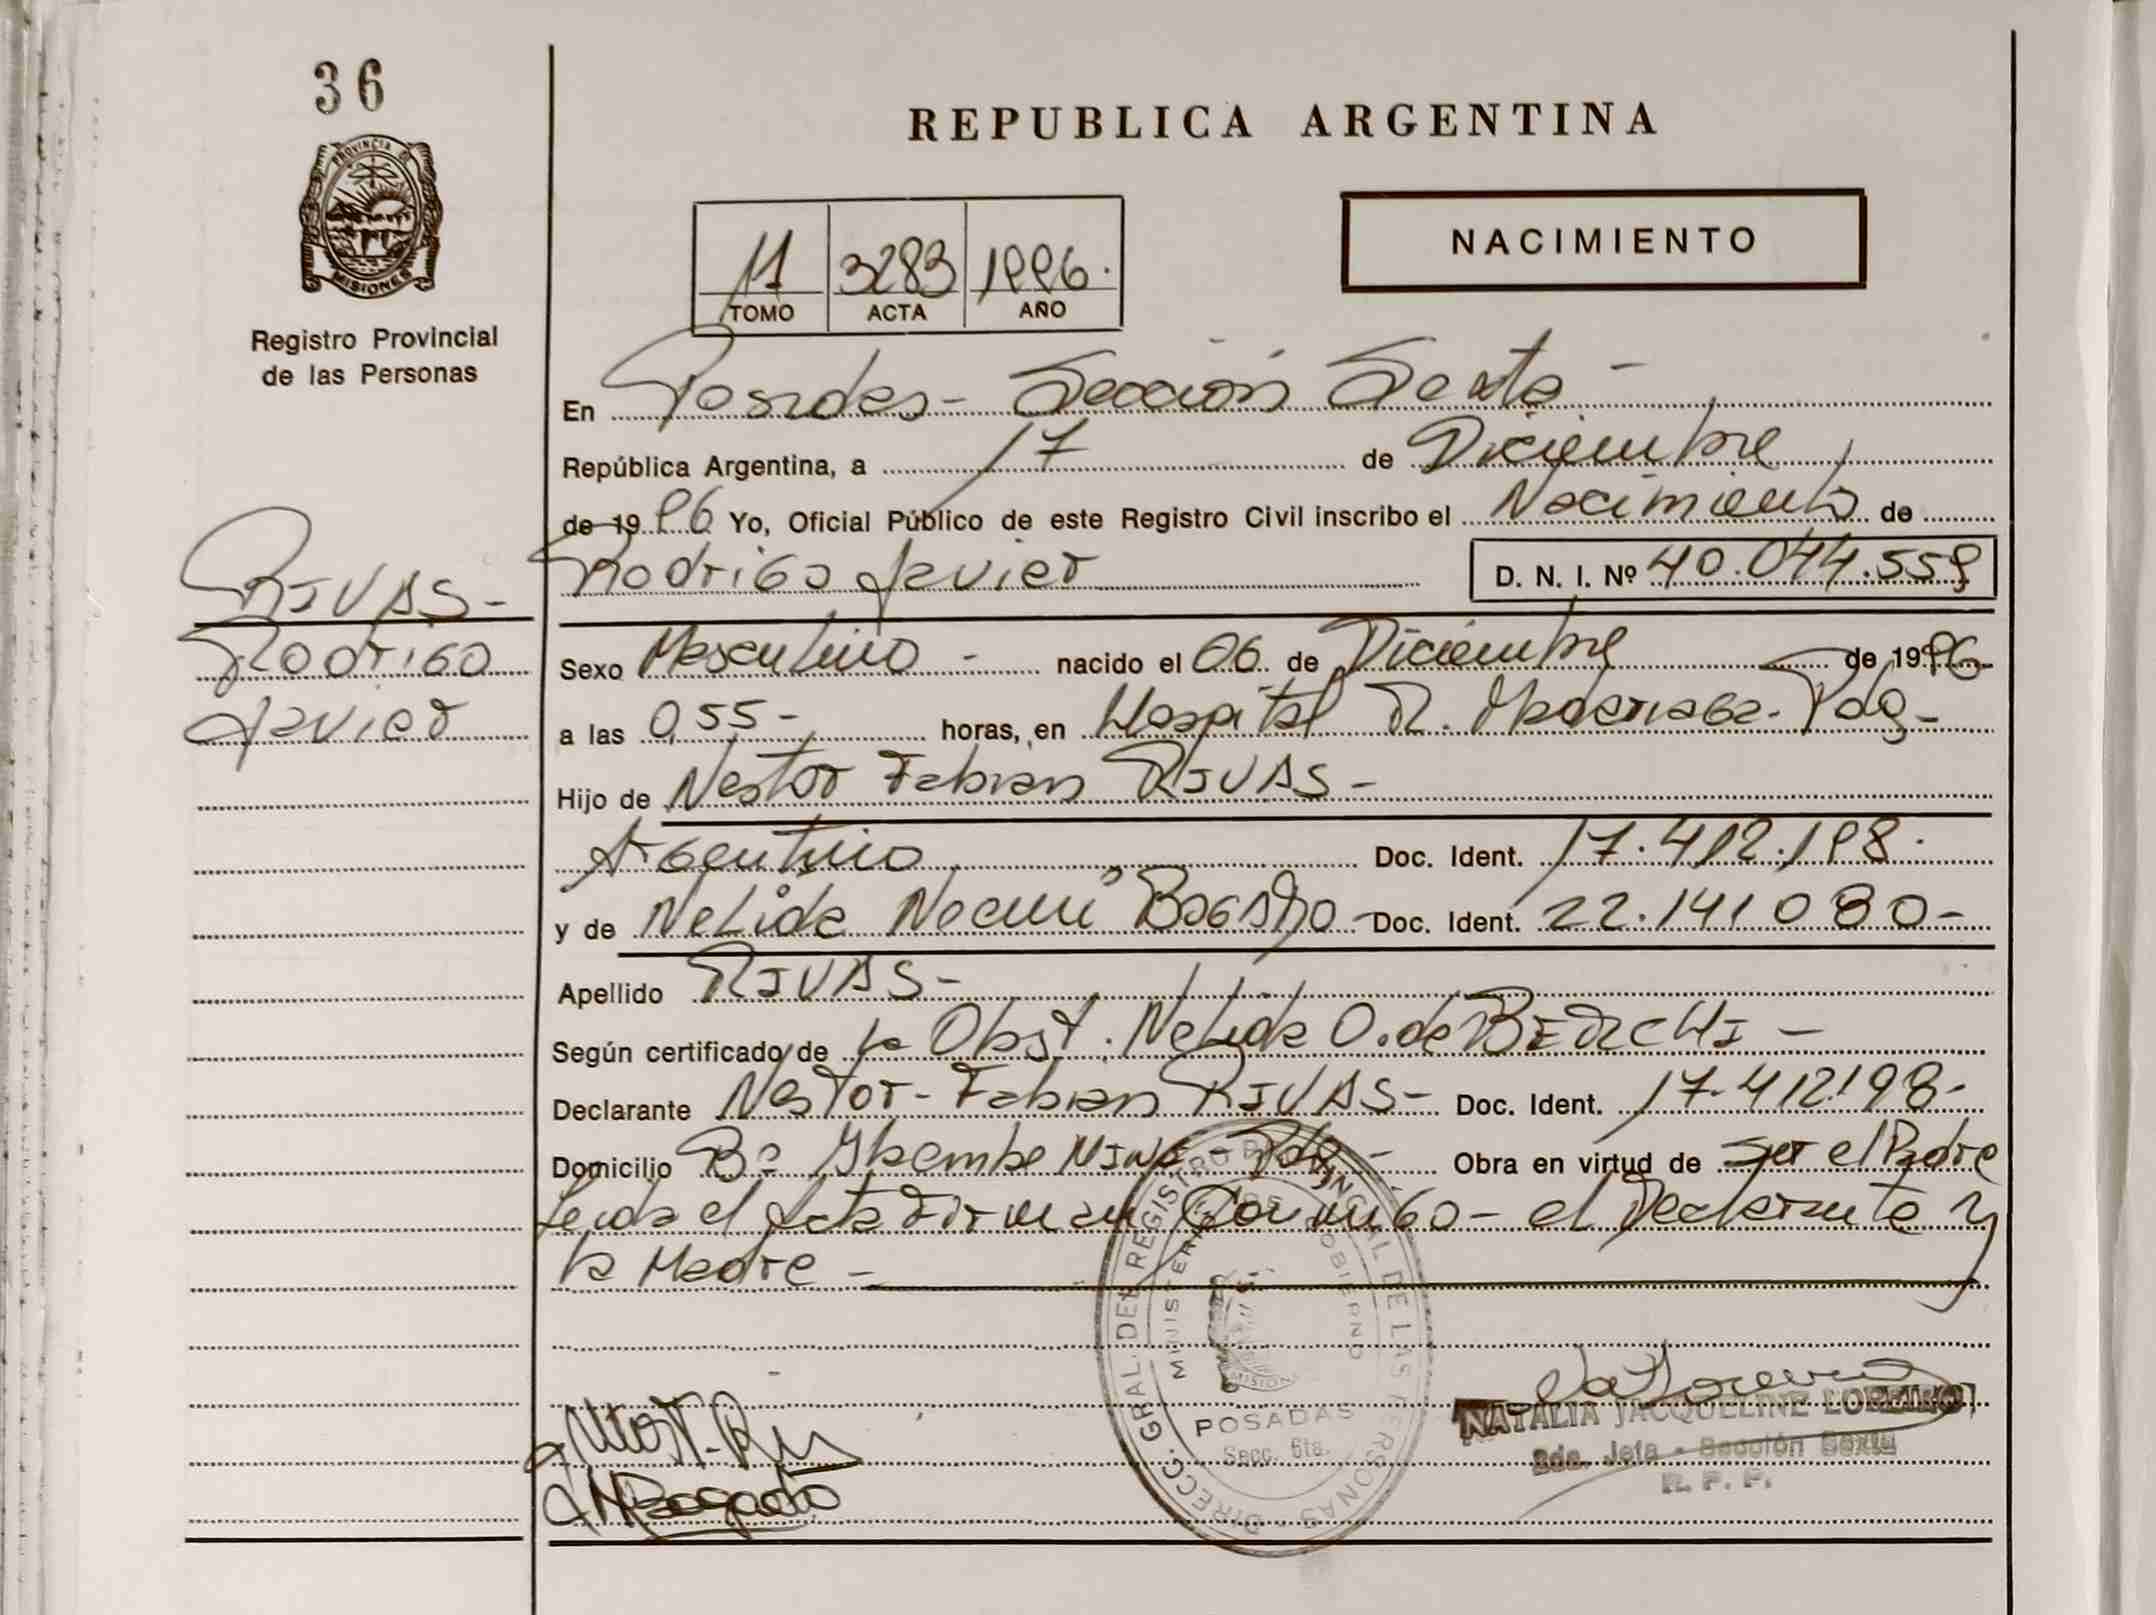 36
PROVINCIA DE
MISIONES
Registro Provincial
de las Personas
REPUBLICA ARGENTINA
NACIMIENTO
11 3283 1996.
TOMO ACTA AÑO
En Posadas - Sección Sexta -
República Argentina, a 17 de Diciembre
de 1996 Yo, Oficial Público de este Registro Civil inscribo el Nacimiento de
Rodrigo Javier D. N. I. Nº 40.044.559
RIVAS -
Rodrigo
Javier
Sexo Masculino - nacido el 06 de Diciembre de 1996
a las 0,55 - horas, en Hospital R. Madariaga - Pdas -
Hijo de Nestor Fabian RIVAS -
Argentino Doc. Ident. 17.412.198.
y de Nelida Noemí Bogado - Doc. Ident. 22.141080 -
Apellido RIVAS -
Según certificado de la Obst. Nelida O. de BERCHI -
Declarante Nestor - Fabian RIVAS - Doc. Ident. 17.412198 -
Domicilio Bº - Pdas - Obra en virtud de ser el Padre
Leida el Acta Firman Conmigo - el Declarante y
la Madre -
DIRECC. GRAL. DEL REGISTRO PROVINCIAL DE LAS PERSONAS
MINISTERIO DE GOBIERNO
MISIONES
POSADAS
Secc. 6ta.
NATALIA JACQUELINE LOREIRO
2da. Jefa - Sección Sexta
R. P. P.
Bogado